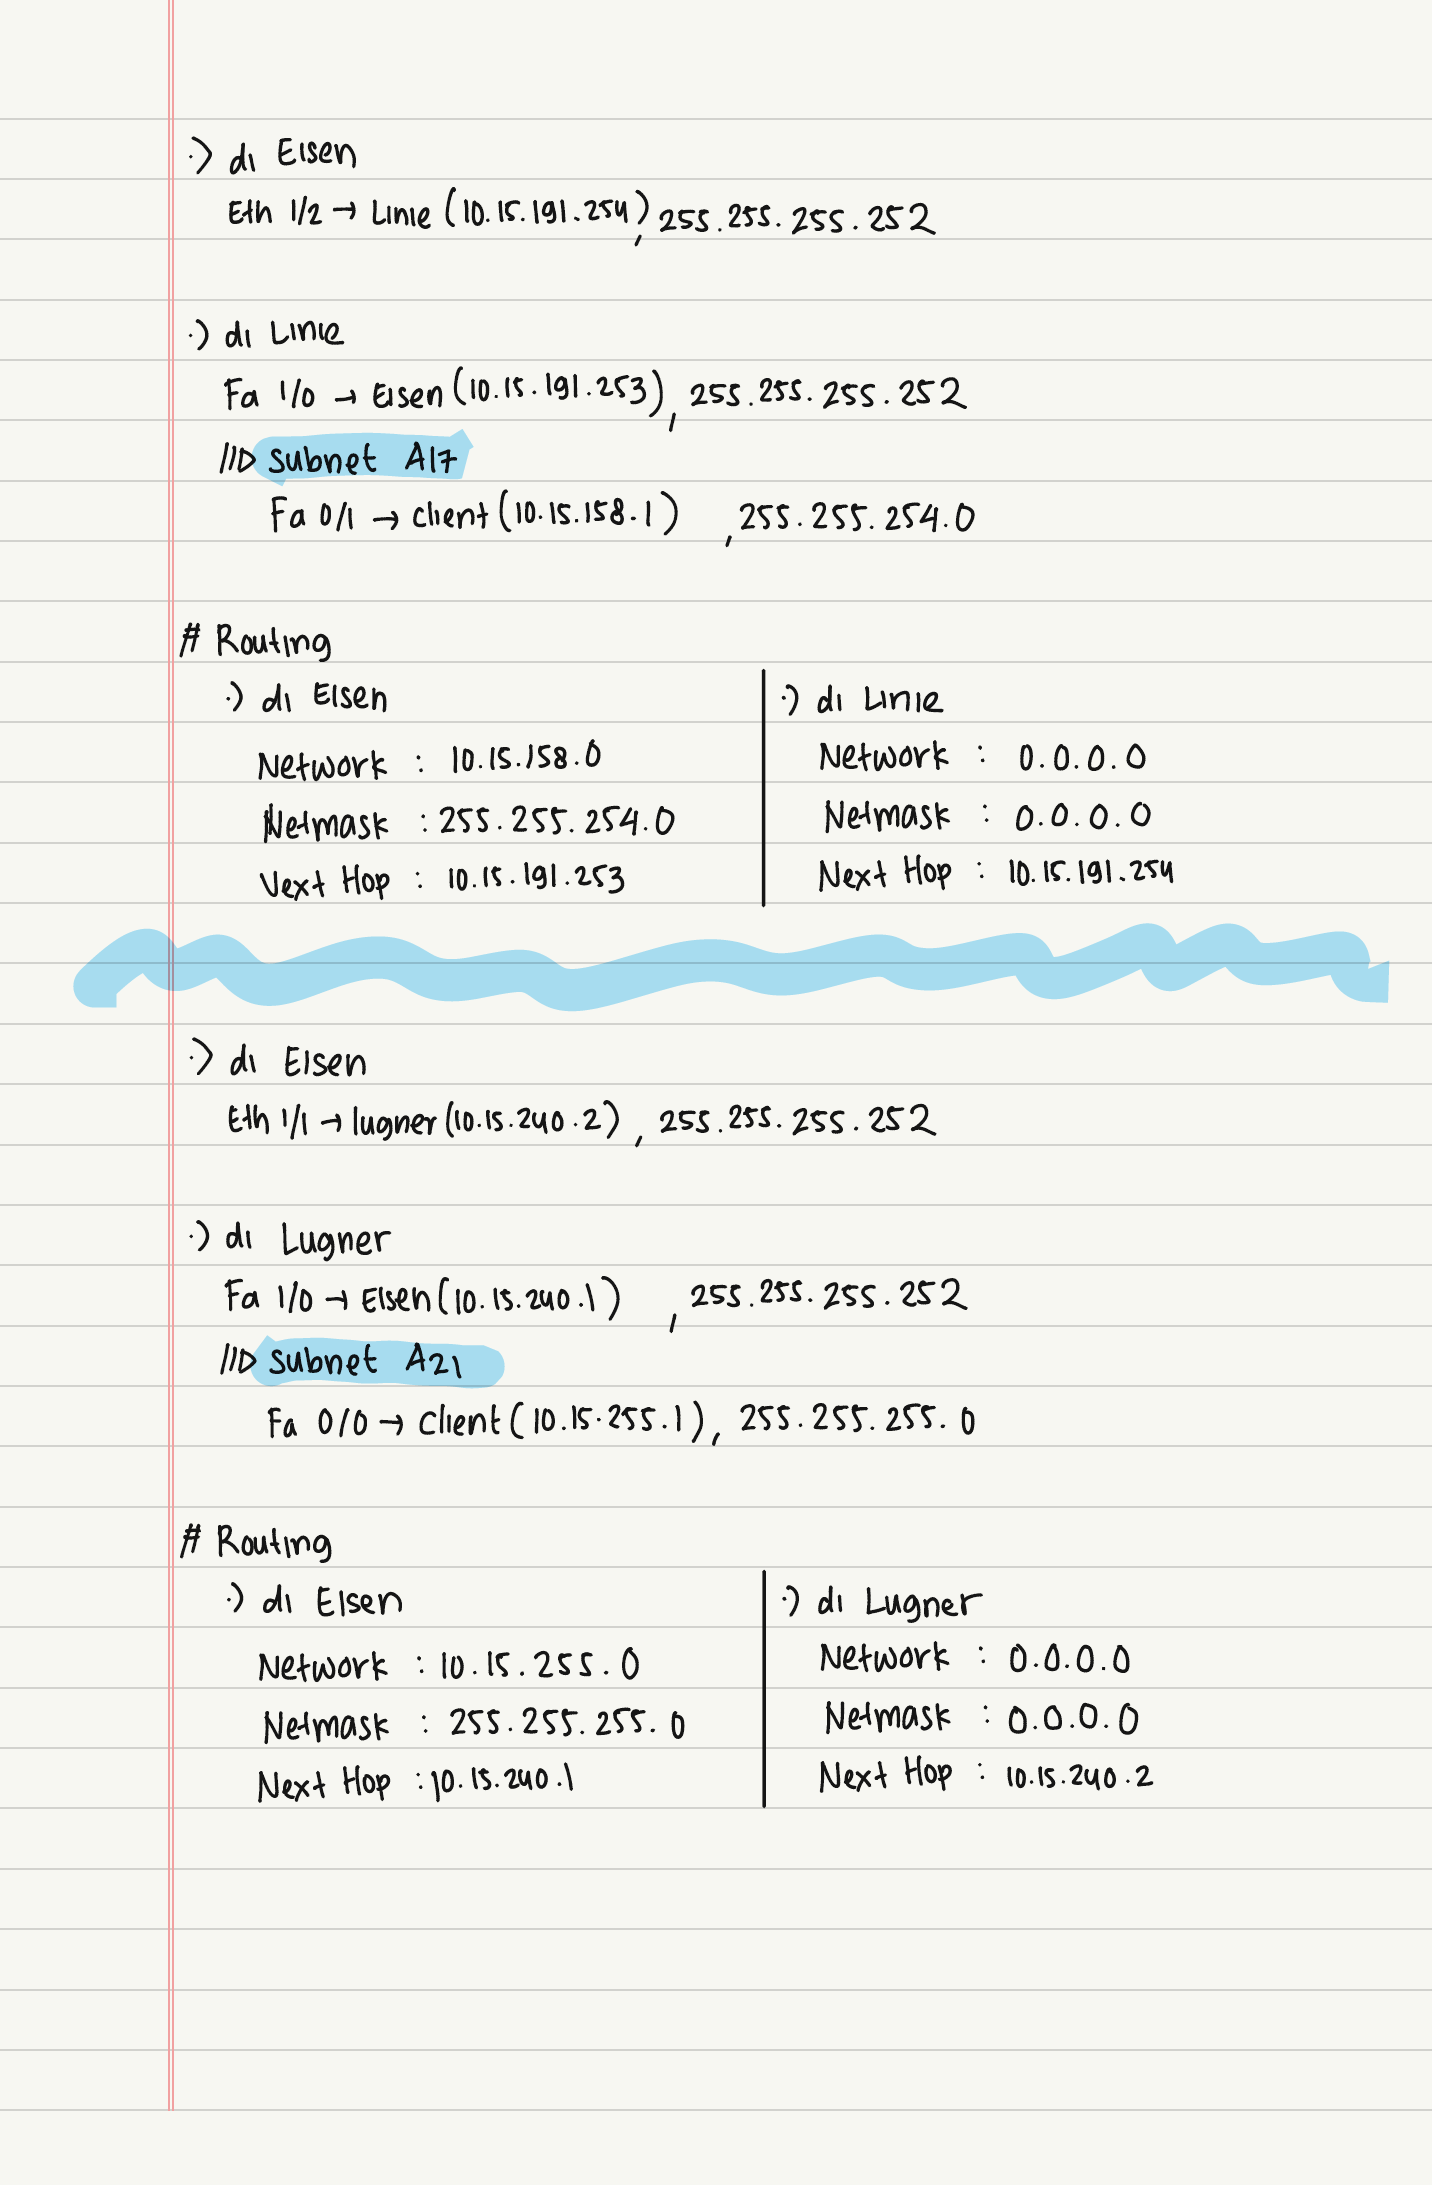 ·) di Eisen
Eth 1/2 → Linie (10.15.191.254), 255.255.255.252
·) di Linie
Fa 1/0 → Eisen (10.15.191.253), 255.255.255.252
Subnet A17
Fa 0/1 → client (10.15.158.1) , 255.255.254.0
# Routing
·) di Eisen
Network : 10.15.158.0
Netmask : 255.255.254.0
Next Hop : 10.15.191.253
·) di Linie
Network : 0.0.0.0
Netmask : 0.0.0.0
Next Hop : 10.15.191.254
·) di Eisen
Eth 1/1 → lugner (10.15.240.2), 255.255.255.252
·) di Lugner
Fa 1/0 → Eisen (10.15.240.1) , 255.255.255.252
Subnet A21
Fa 0/0 → Client (10.15.255.1), 255.255.255.0
# Routing
·) di Eisen
Network : 10.15.255.0
Netmask : 255.255.255.0
Next Hop : 10.15.240.1
·) di Lugner
Network : 0.0.0.0
Netmask : 0.0.0.0
Next Hop : 10.15.240.2